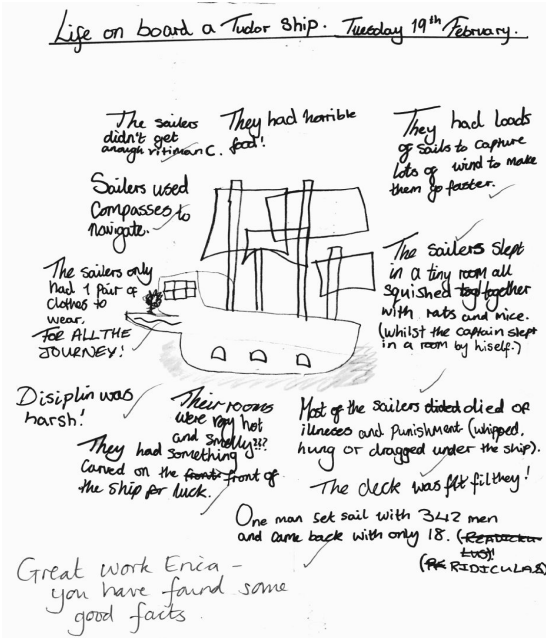 Life on board a Tudor Ship. Tuesday 19th February.
The sailers
didn't get
enough vitimanC.
They had horrible
food!
They had loads
of sails to capture
lots of wind to make
them go faster.
Sailers used
compasses to
navigate.
The sailers slept
in a tiny room all
squished together
with rats and mice.
(whilst the captain slept
in a room by hiself.)
The sailers only
had 1 pair of
clothes to
wear.
FOR ALL THE
JOURNEY!
Disiplin was
harsh!
Their rooms
were very hot
and smelly???
They had something
carved on the front front of
the ship for luck.
Most of the sailers died of
illneces and punishment (whipped,
hung or dragged under the ship).
The deck was filthey!
One man set sail with 342 men
and came back with only 18.
(RIDICULAS)
Great work Erica -
you have found some
good facts.